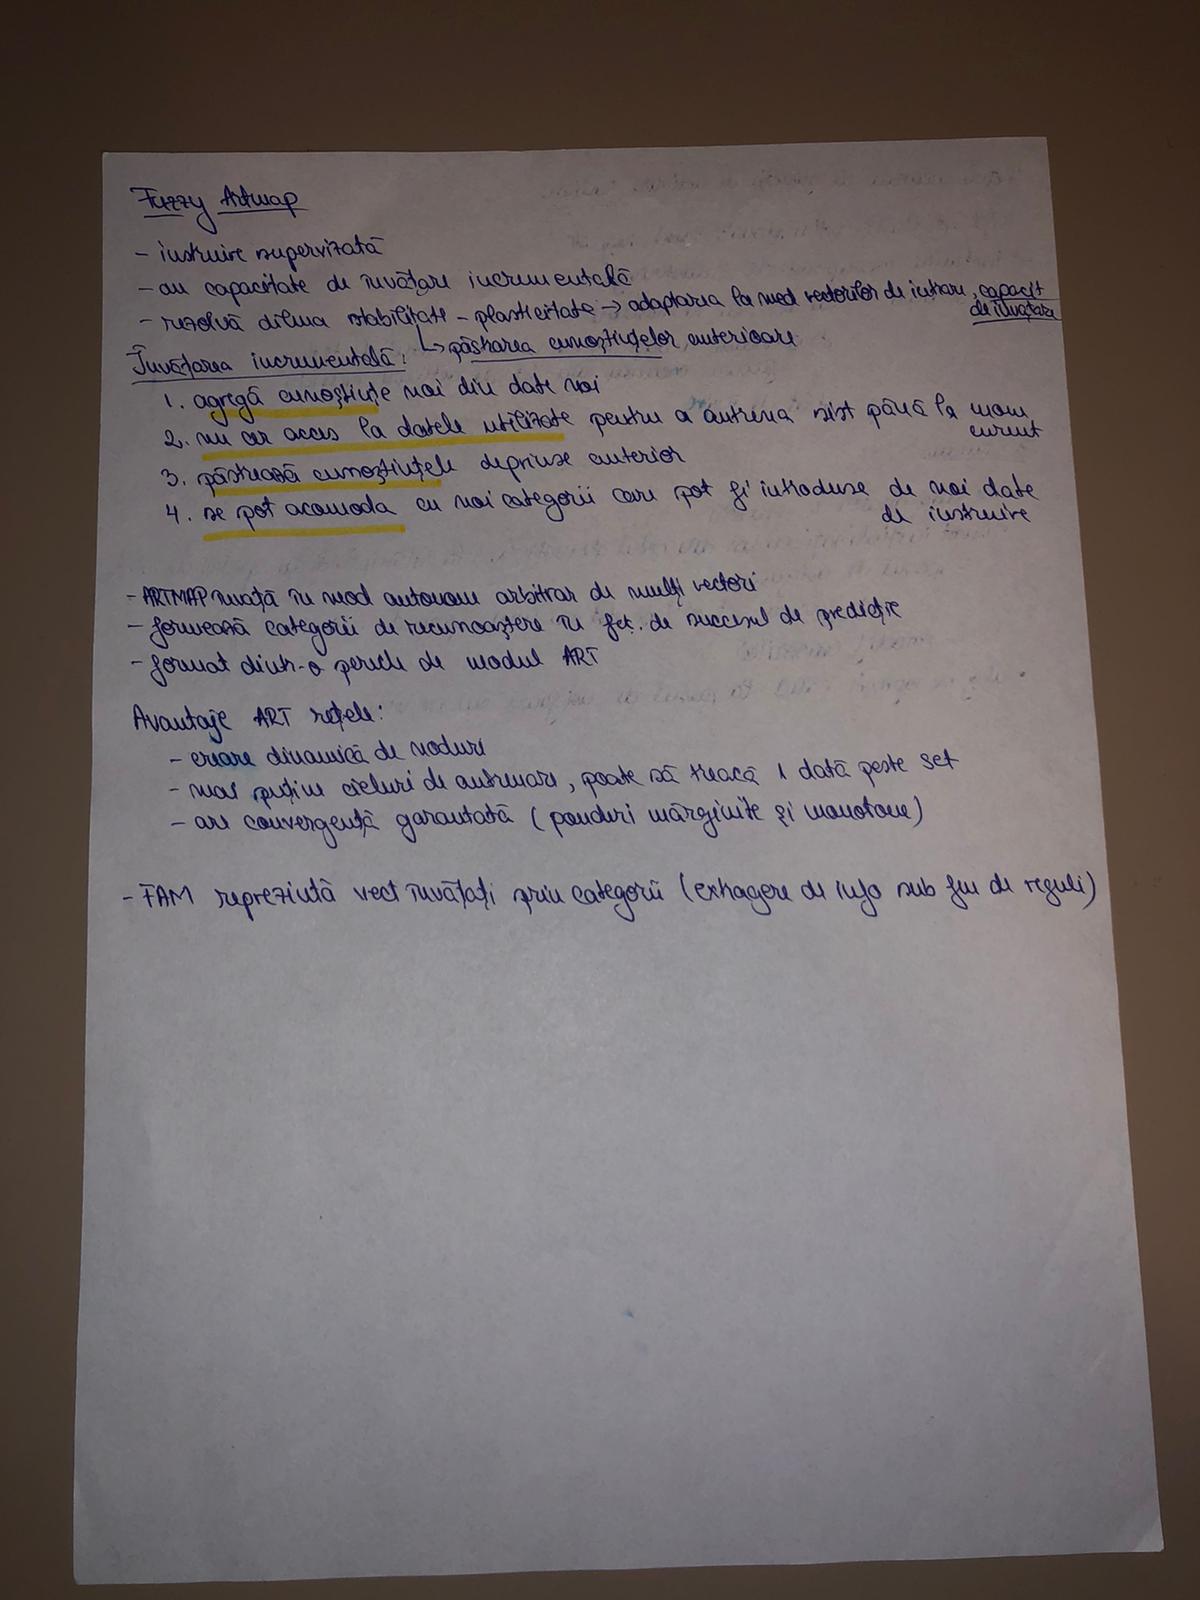 Fuzzy Artmap
- instruire supervizată
- au capacitate de învățare incrementală
- rezolvă dilema stabilitate - plasticitate → adaptarea la med vectorilor de intrare, capacit
de învățare
↳ păstrarea cunoștințelor anterioare
Învățarea incrementală:
1. agregă cunoștințe noi din date noi
2. nu cer acces la datele utilizate pentru a antrena sist până la mom
curent
3. păstrează cunoștințele deprinse anterior
4. se pot acomoda cu noi categorii care pot fi introduse de noi date
de instruire
- ARTMAP învață în mod autonom arbitrar de mulți vectori
- formează categorii de recunoaștere în fct. de succesul de predicție
- format dintr-o pereche de modul ART
Avantaje ART rețele:
- creare dinamică de noduri
- mai puține cicluri de antrenare, poate să treacă 1 dată peste set
- are convergență garantată (ponduri mărginite și monotone)
- FAM reprezintă vect învățați prin categorii (extragere de info sub fm de reguli)